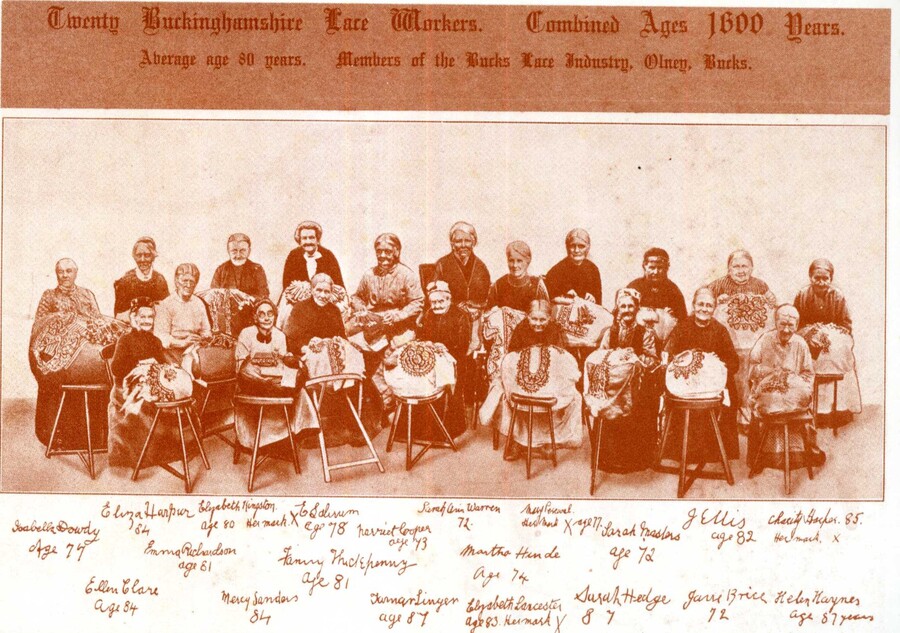 Twenty Buckinghamshire Lace Workers. Combined Ages 1600 Years.
Average age 80 years. Members of the Bucks Lace Industry, Olney, Bucks.
Isabella Dowdy
Age 77
Eliza Harpur
84
Elizabeth Kingston
age 80 Her mark. X
age 78
Harriet Cooper
age 73
Sarah Ann Warren
72.
Her Mark X age 77.
Sarah Masters
age 72
J Ellis
age 82
Charity 85.
Her mark. x
Emma Richardson
age 81
Fanny Huckpenny
age 81
Martha Hinde
Age 74
Ellen Clare
Age 84
Mercy Sanders
84
age 87
Elizabeth Lancester
age 83. Her mark X
Sarah Hedge
87
Brice
72
Helen Haynes
age 87 years